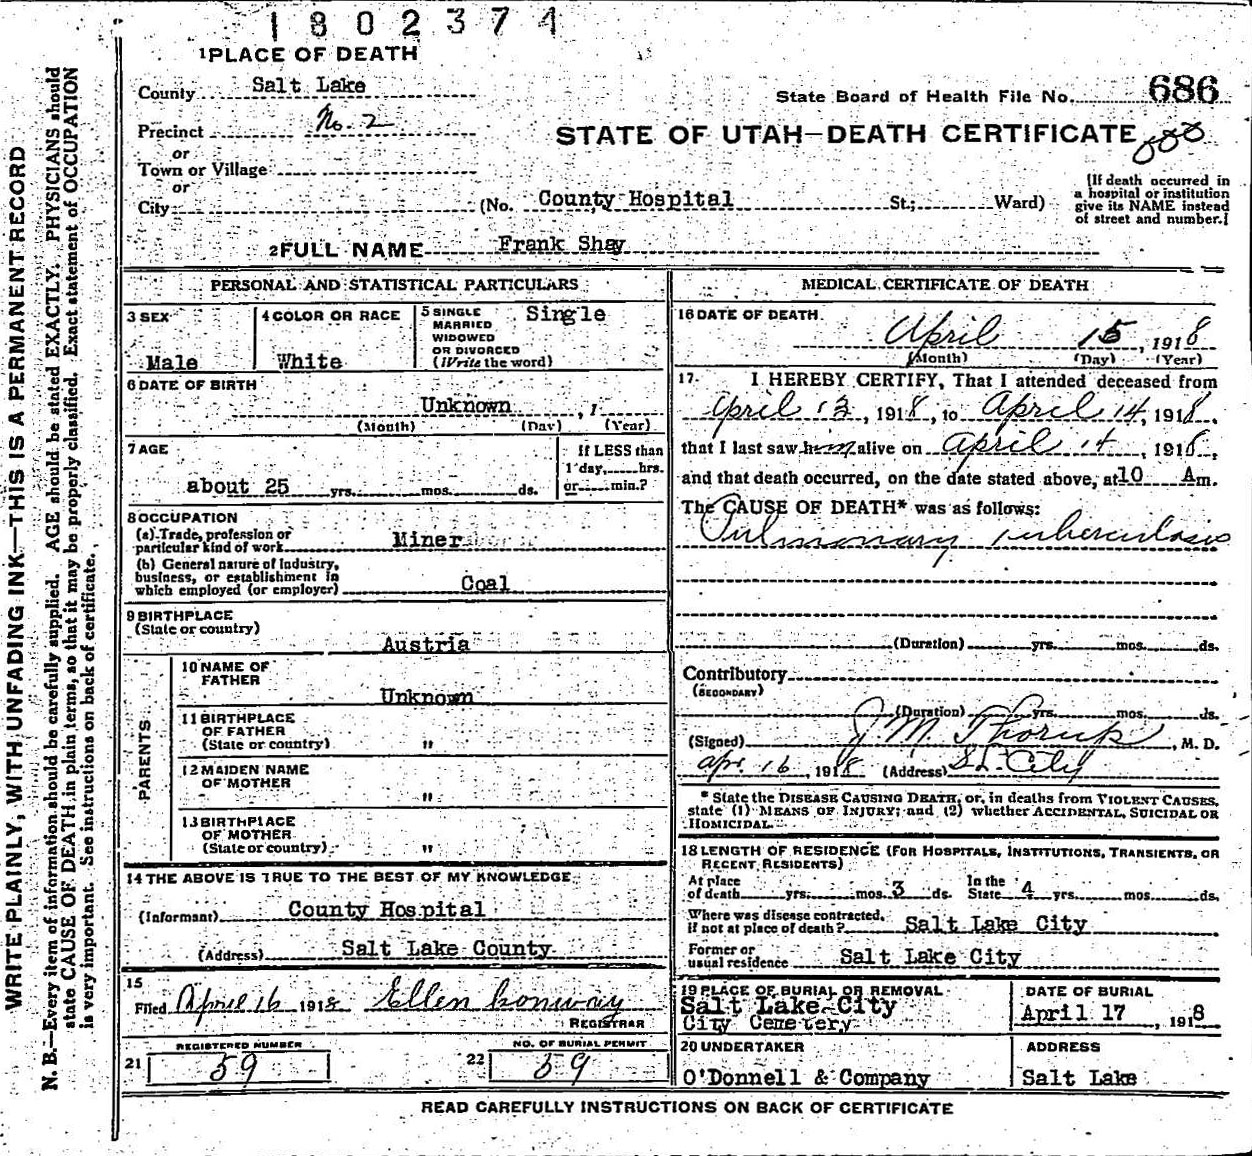 1802374
1 PLACE OF DEATH
County Salt Lake
State Board of Health File No. 686
Precinct No 2
STATE OF UTAH—DEATH CERTIFICATE
or
Town or Village
or
City (No. County Hospital St.; Ward)
(If death occurred in
a hospital or institution
give its NAME instead
of street and number.)
2 FULL NAME Frank Shay
PERSONAL AND STATISTICAL PARTICULARS
3 SEX
Male
4 COLOR OR RACE
White
5 SINGLE
MARRIED
WIDOWED
OR DIVORCED
(Write the word)
Single
6 DATE OF BIRTH
Unknown , 1
(Month) (Day) (Year)
7 AGE
about 25 yrs. mos. ds.
If LESS than
1 day, hrs.
or min.?
8 OCCUPATION
(a) Trade, profession or
particular kind of work Miner
(b) General nature of industry,
business, or establishment in
which employed (or employer) Coal
9 BIRTHPLACE
(State or country)
Austria
PARENTS
10 NAME OF
FATHER
Unknown
11 BIRTHPLACE
OF FATHER
(State or country) "
12 MAIDEN NAME
OF MOTHER
"
13 BIRTHPLACE
OF MOTHER
(State or country) "
14 THE ABOVE IS TRUE TO THE BEST OF MY KNOWLEDGE
(Informant) County Hospital
(Address) Salt Lake County
15
Filed April 16 1918 Ellen Conway
REGISTRAR
REGISTERED NUMBER
21 59
NO. OF BURIAL PERMIT
22 59
MEDICAL CERTIFICATE OF DEATH
16 DATE OF DEATH
April 15, 1918
(Month) (Day) (Year)
17. I HEREBY CERTIFY, That I attended deceased from
April 13, 1918, to April 14, 1918,
that I last saw him alive on April 14, 1918,
and that death occurred, on the date stated above, at 10 Am.
The CAUSE OF DEATH* was as follows:
Pulmonary tuberculosis
(Duration) yrs. mos. ds.
Contributory
(SECONDARY)
(Duration) yrs. mos. ds.
(Signed) J. M. , M. D.
Apr. 16, 1918 (Address) S L City
* State the DISEASE CAUSING DEATH, or, in deaths from VIOLENT CAUSES,
state (1) MEANS OF INJURY; and (2) whether ACCIDENTAL, SUICIDAL OR
HOMICIDAL.
18 LENGTH OF RESIDENCE (FOR HOSPITALS, INSTITUTIONS, TRANSIENTS, OR
RECENT RESIDENTS)
At place
of death yrs. mos. 3 ds.
In the
State 4 yrs. mos. ds.
Where was disease contracted,
if not at place of death? Salt Lake City
Former or
usual residence Salt Lake City
19 PLACE OF BURIAL OR REMOVAL
Salt Lake City
City Cemetery
DATE OF BURIAL
April 17, 1918
20 UNDERTAKER
O'Donnell & Company
ADDRESS
Salt Lake
READ CAREFULLY INSTRUCTIONS ON BACK OF CERTIFICATE
WRITE PLAINLY, WITH UNFADING INK—THIS IS A PERMANENT RECORD
N. B.—Every item of information should be carefully supplied. AGE should be stated EXACTLY. PHYSICIANS should
state CAUSE OF DEATH in plain terms, so that it may be properly classified. Exact statement of OCCUPATION
is very important. See instructions on back of certificate.